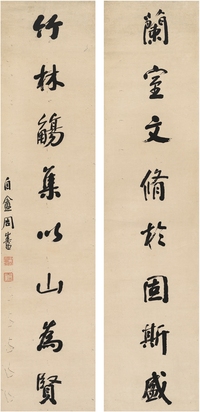 蘭室文脩於固斯盛
竹林觴集以山為賢
自盦周書